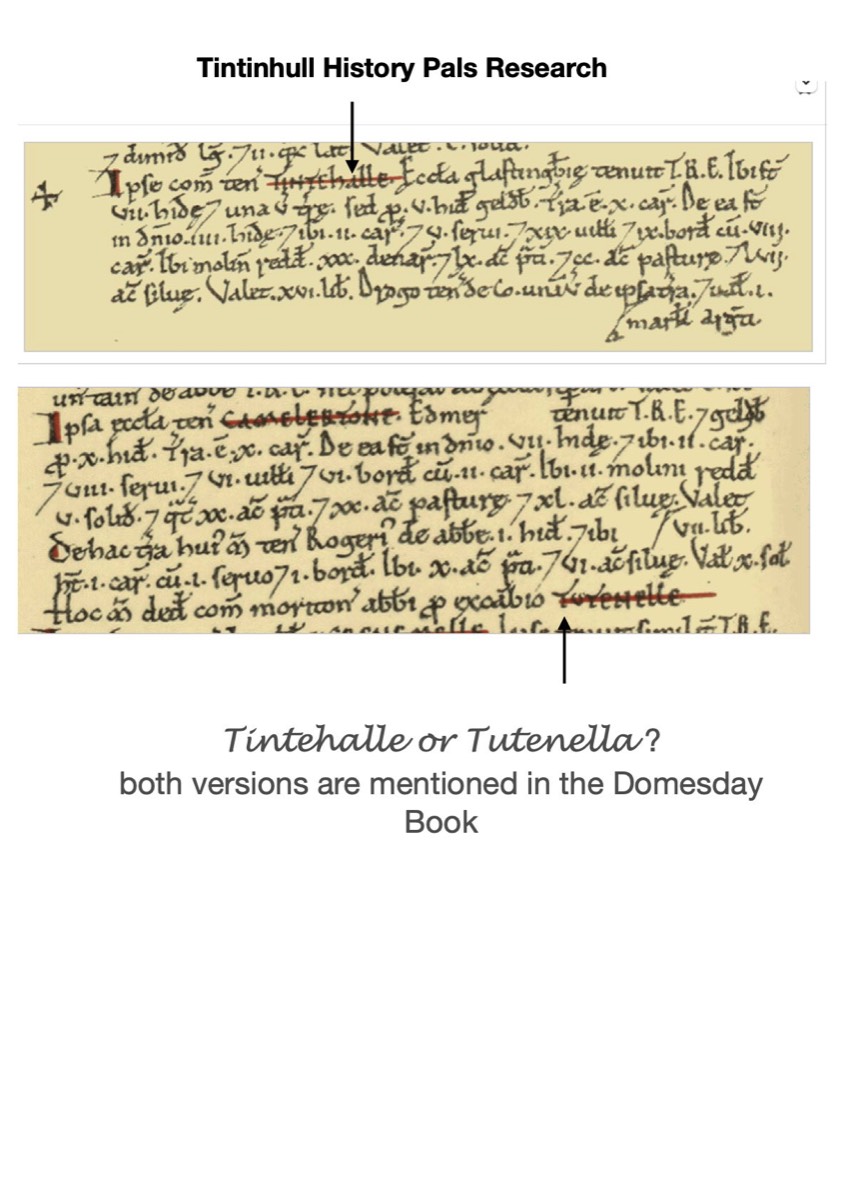 Tintinhull History Pals Research
⁊ dimid lg̃.⁊ 11. qx̃ lat̃ Valet . c. solid.
Ipse com̃ teñ TINTEHALLE. Eccła glastingbịę tenuit T.R.E. Ibi st̃
vii. hidę ⁊ una v̄ trę. sed p̱. v. hid̃ geldb̃. Tr̃a. ē. x. car̃. De ea st̃
in dñio. iiii. hidę. ⁊ ibi. ii. car̃. ⁊ v. serui. ⁊ xix. uiłłi ⁊ ix. bord̃ cū. viii.
car̃. Ibi molin̄ redd̃. xxx. denar̃. ⁊ lx. ac̃ p̃ti. ⁊ cc. ac̃ pasturę. ⁊ lvij.
ac̃ siluę. Valet. xvi. lib̃. Drogo teñ de Co. unā v̄ de ipsa tr̃a. ⁊ uał. i.
mark̃ arg̃ti.
Ipsa ęccła teñ CAMELERTONE. Edmer tenuit T.R.E. ⁊ geldb̃
p̱. x. hid̃. Tr̃a. ē. x. car̃. De ea st̃ in dñio. vii. hidę. ⁊ ibi. ii. car̃.
⁊ viii. serui. ⁊ vi. uiłłi ⁊ vi. bord̃ cū. ii. car̃. Ibi. ii. molini redd̃
v. solid̃. ⁊ qt̃ xx. ac̃ p̃ti. ⁊ xx. ac̃ pasturę ⁊ xl. ac̃ siluę. Valet
vii. lib̃.
De hac tr̃a hui᾿ m̃ teñ Rogeri᾿ de abb̃e. i. hid̃. ⁊ ibi
ht̃. i. car̃. cū. i. seruo ⁊ i. bord̃. Ibi. x. ac̃ p̃ti. ⁊ vi. ac̃ siluę. Vał x. soł
Hoc m̃ ded̃ com̃ moriton᾿ abb̃i p̱ excābio TUTENELLE
Tintehalle or Tutenella ?
both versions are mentioned in the Domesday
Book